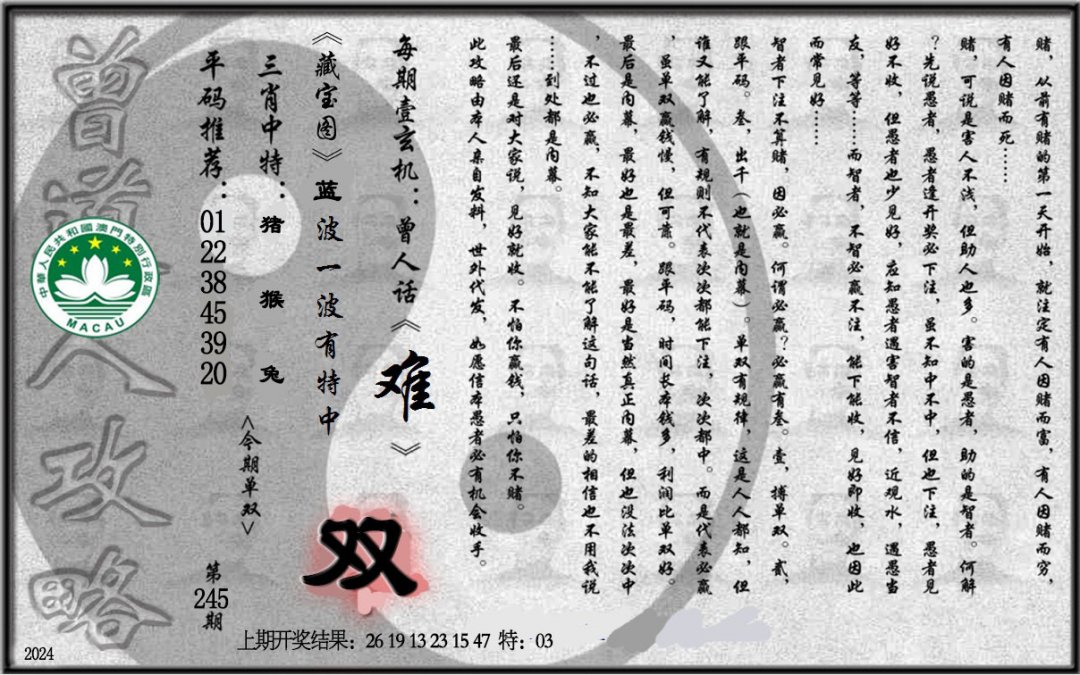 赌，从前有赌的第一天开始，就注定有人因赌而富，有人因赌而穷，
有人因赌而死……
赌，可说是害人不浅，但助人也多。害的是愚者，助的是智者。何解
？先说愚者，愚者逢开奖必下注，虽不知中不中，但也下注，愚者见
好不收，但愚者也少见好，应知愚者遇害智者不信，近观水，遇愚当
友，等等……而智者，不智必赢不注，能下能收，见好即收，也因此
而常见好……
智者下注不算赌，因必赢。何谓必赢？必赢有叁。壹，搏单双。贰，
跟平码。叁，出千（也就是内幕）。单双有规律，这是人人都知，但
谁又能了解，有规则不代表次次都能下注，次次都中。而是代表必赢
，虽单双赢钱慢，但可靠。跟平码，时间长本钱多，利润比单双好。
最后是内幕，最好也是最差，最好是当然真正内幕，但也没法次次中
，不过也必赢，不知大家能不能了解这句话，最差的相信也不用我说
……到处都是内幕。
最后还是对大家说，见好就收。不怕你赢钱，只怕你不赌。
此攻略由本人亲自发料，世外代发，如愿信本愚者必有机会收手。
每期壹玄机：曾人话《难》
《藏宝图》蓝波一波有特中
双
三肖中特：猪 猴 兔
<今期单双>
平码推荐：01 22 38 45 39 20
第245期
曾道人攻略
中華人民共和國澳門特別行政區
MACAU
上期开奖结果：26 19 13 23 15 47 特：03
2024